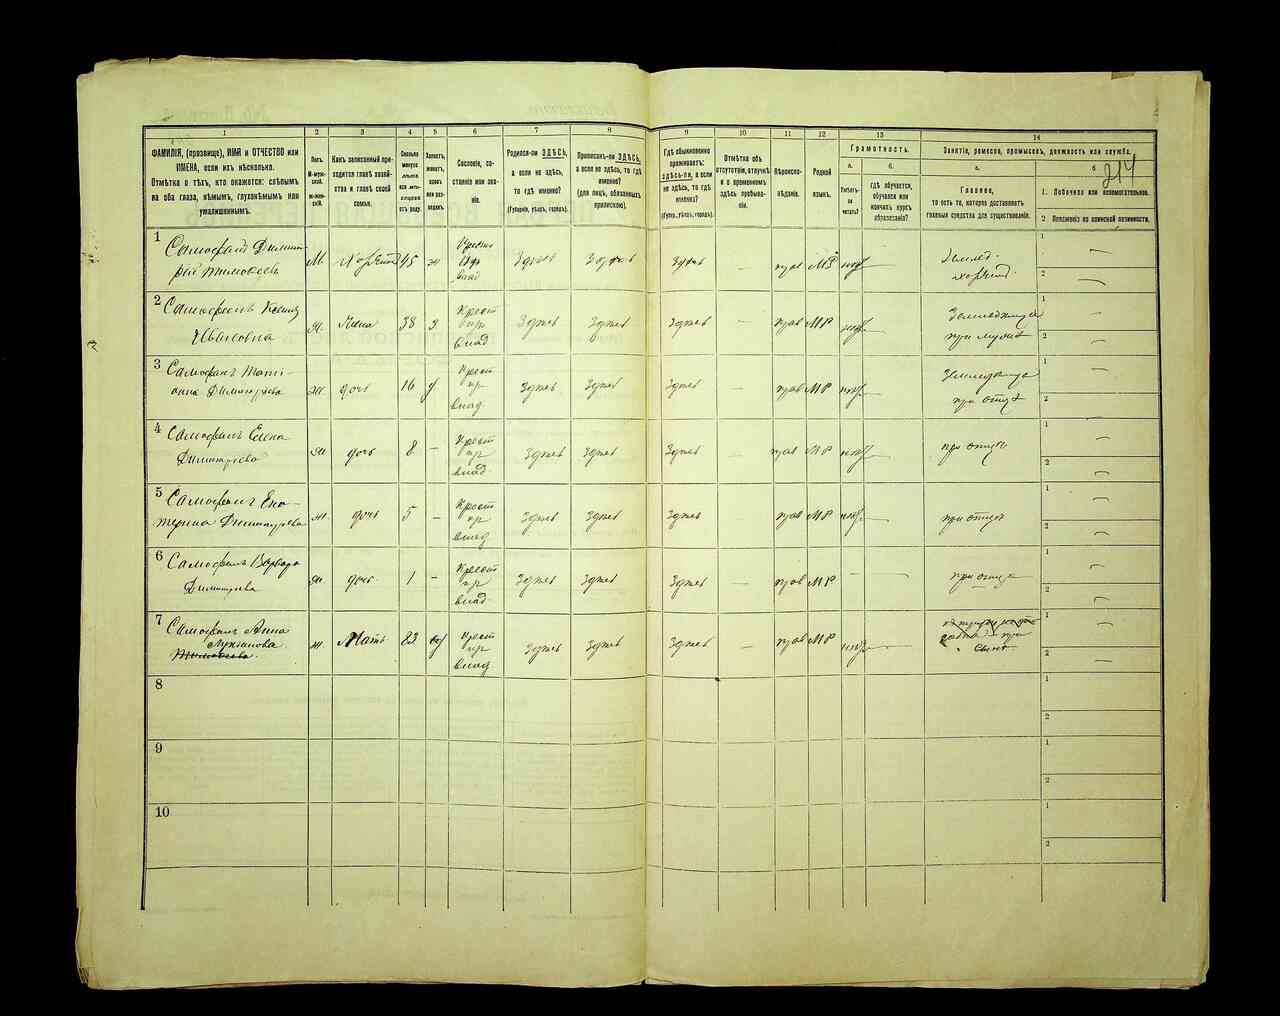 214
1
2
3
4
5
6
7
8
9
10
11
12
13
14
ФАМИЛІЯ, (прозвище), ИМЯ и ОТЧЕСТВО или
ИМЕНА, если ихъ нѣсколько.
Отмѣтка о тѣхъ, кто окажется: слѣпымъ
на оба глаза, нѣмымъ, глухонѣмымъ или
умалишеннымъ.
Полъ.
М-муж-
ской.
ж-жен-
скій.
Какъ записанный при-
ходится главѣ хозяй-
ства и главѣ своей
семьи.
Сколько
минуло
лѣтъ
или мѣся-
цевъ
отъ роду.
Холостъ,
женатъ,
вдовъ
или раз-
веденъ.
Сословіе, со-
стояніе или зва-
ніе.
Родился-ли ЗДѢСЬ,
а если не здѣсь,
то гдѣ именно?
(Губернія, уѣздъ, городъ).
Приписанъ-ли ЗДѢСЬ,
а если не здѣсь, то гдѣ
именно?
(для лицъ, обязанныхъ
припискою).
Гдѣ обыкновенно
проживаетъ:
здѣсь-ли, а если
не здѣсь, то гдѣ
именно?
(Губер., уѣздъ, городъ).
Отмѣтка объ
отсутствіи, отлучкѣ
и о временномъ
здѣсь пребыва-
ніи.
Вѣроиспо-
вѣданіе.
Родной
языкъ.
Грамотность.
а.
Умѣетъ-
ли
читать?
б.
гдѣ обучается,
обучался или
кончилъ курсъ
образованія?
Занятіе, ремесло, промыселъ, должность или служба.
а.
Главное,
то есть то, которое доставляетъ
главныя средства для существованія.
б.
1. Побочное или вспомогательное.
2. Положеніе по воинской повинности.
1
Самофалъ Димит-
рій Тимофеевъ
М
Хозяинъ
45
ж
Крест
влад
Здѣсь
Здѣсь
Здѣсь
—
прав
МР
Землед.
хозяинъ.
1 —
2 —
2
Самофалъ Ксенія
Ивановна
ж
Жена
38
з
Крест
пр
влад
Здѣсь
Здѣсь
Здѣсь
—
прав
МР
при мужѣ
1 —
2 —
3
Самофалъ Тати-
анна Димитріева
ж
дочь
16
Крест
пр
влад
Здѣсь
Здѣсь
Здѣсь
—
прав
МР
при отцѣ
1 —
2 —
4
Самофалъ Елена
Димитріева
ж
дочь
8
—
Крест
пр
влад
Здѣсь
Здѣсь
Здѣсь
—
прав
МР
при отцѣ
1 —
2 —
5
Самофалъ Ека-
терина Димитріева
ж
дочь
5
—
Крест
пр
влад
Здѣсь
Здѣсь
Здѣсь
прав
МР
при отцѣ
1 —
2 —
6
Самофалъ Варвара
Димитріева
ж
дочь
1
—
Крест
пр
влад
Здѣсь
Здѣсь
Здѣсь
—
прав
МР
—
—
при отцѣ
1 —
2 —
7
Самофалъ Анна
Лукьянова
Тимофеева
ж
Мать
83
вд
Крест
пр
влад
Здѣсь
Здѣсь
Здѣсь
—
прав
МР
при
сынѣ
1 —
2 —
8
1
2
9
1
2
10
1
2